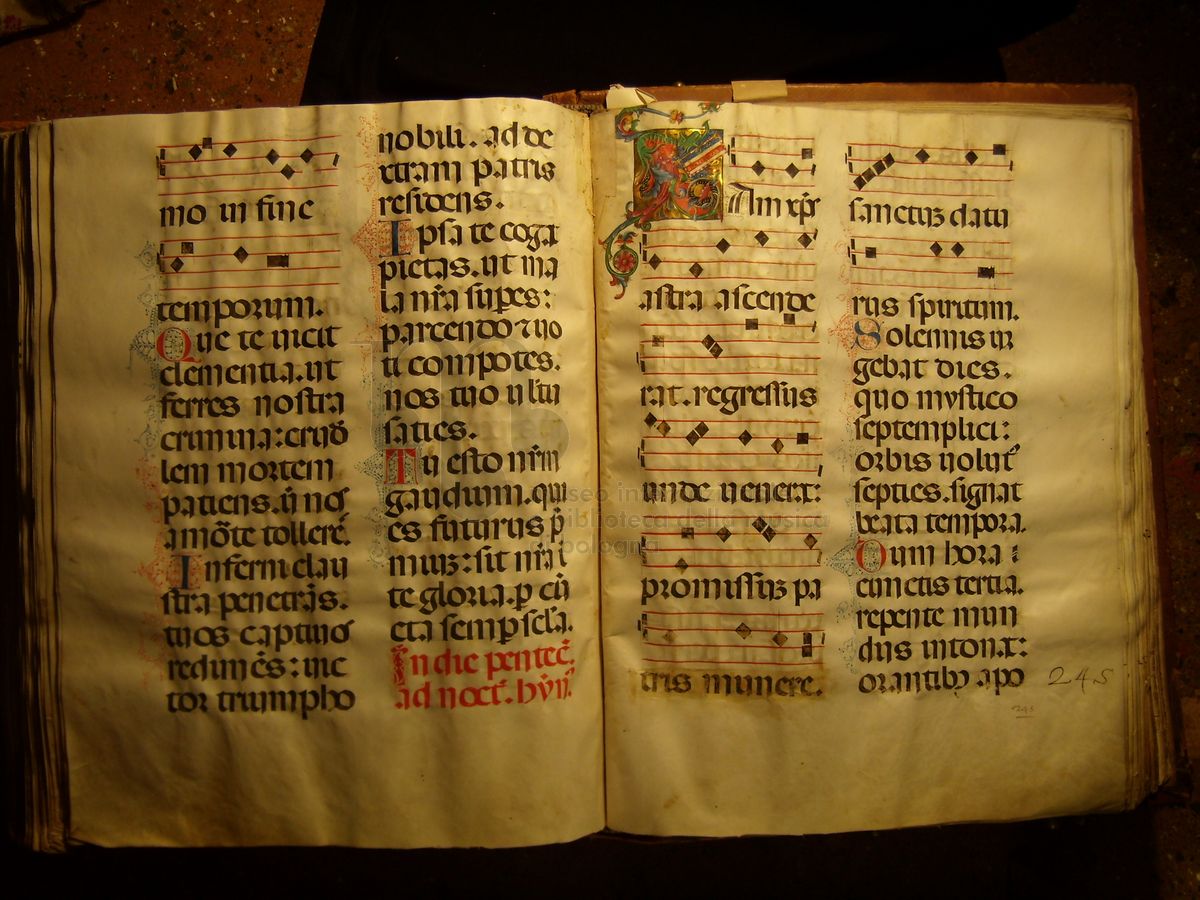 mo in fine
temporum.
Que te uicit
clementia.ut
ferres nostra
crimina:crudẽ
lem mortem
patiens.ũ nos
a mõte tollerẽ.
Inferni clau
stra penetrãs.
tuos captiuos
redimẽs:uic
tor triumpho
nobili.ad de
xtram patris
residens.
Ipsa te coga
pietas.ut ma
la nr̃a supes:
parcendo ⁊ uo
ti compotes.
nos tuo uultu
saties.
Tu esto nr̃m
gaudium.qui
es futurus p̃
mium:sit nr̃a ĩ
te gloria.p cũ
cta semp scl̃a.
In die pentec̃.
ad noct̃.hỹn̄.
Iam xp̃s
astra ascende
rat.regressus
unde uenerat:
promissuꝫ pa
tris munere.
sanctuꝫ datu
rus spiritum.
Solemnis ur
gebat dies.
quo mystico
septemplici:
orbis uolut9
septies.signat
beata tempora.
Dum hora
cunctis tertia.
repente mun
dus intonat:
orantibꝫ apo
245
245
museo internazionale
biblioteca della musica
bologna